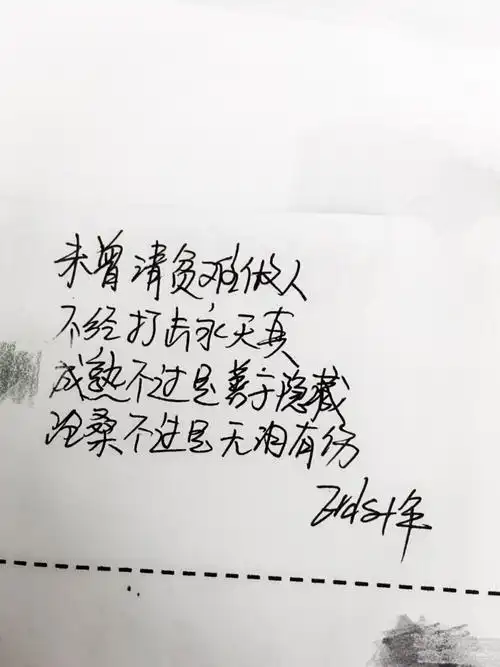 未曾清贫难做人
不经打击永天真
成熟不过是善于隐藏
沧桑不过是无泪有伤